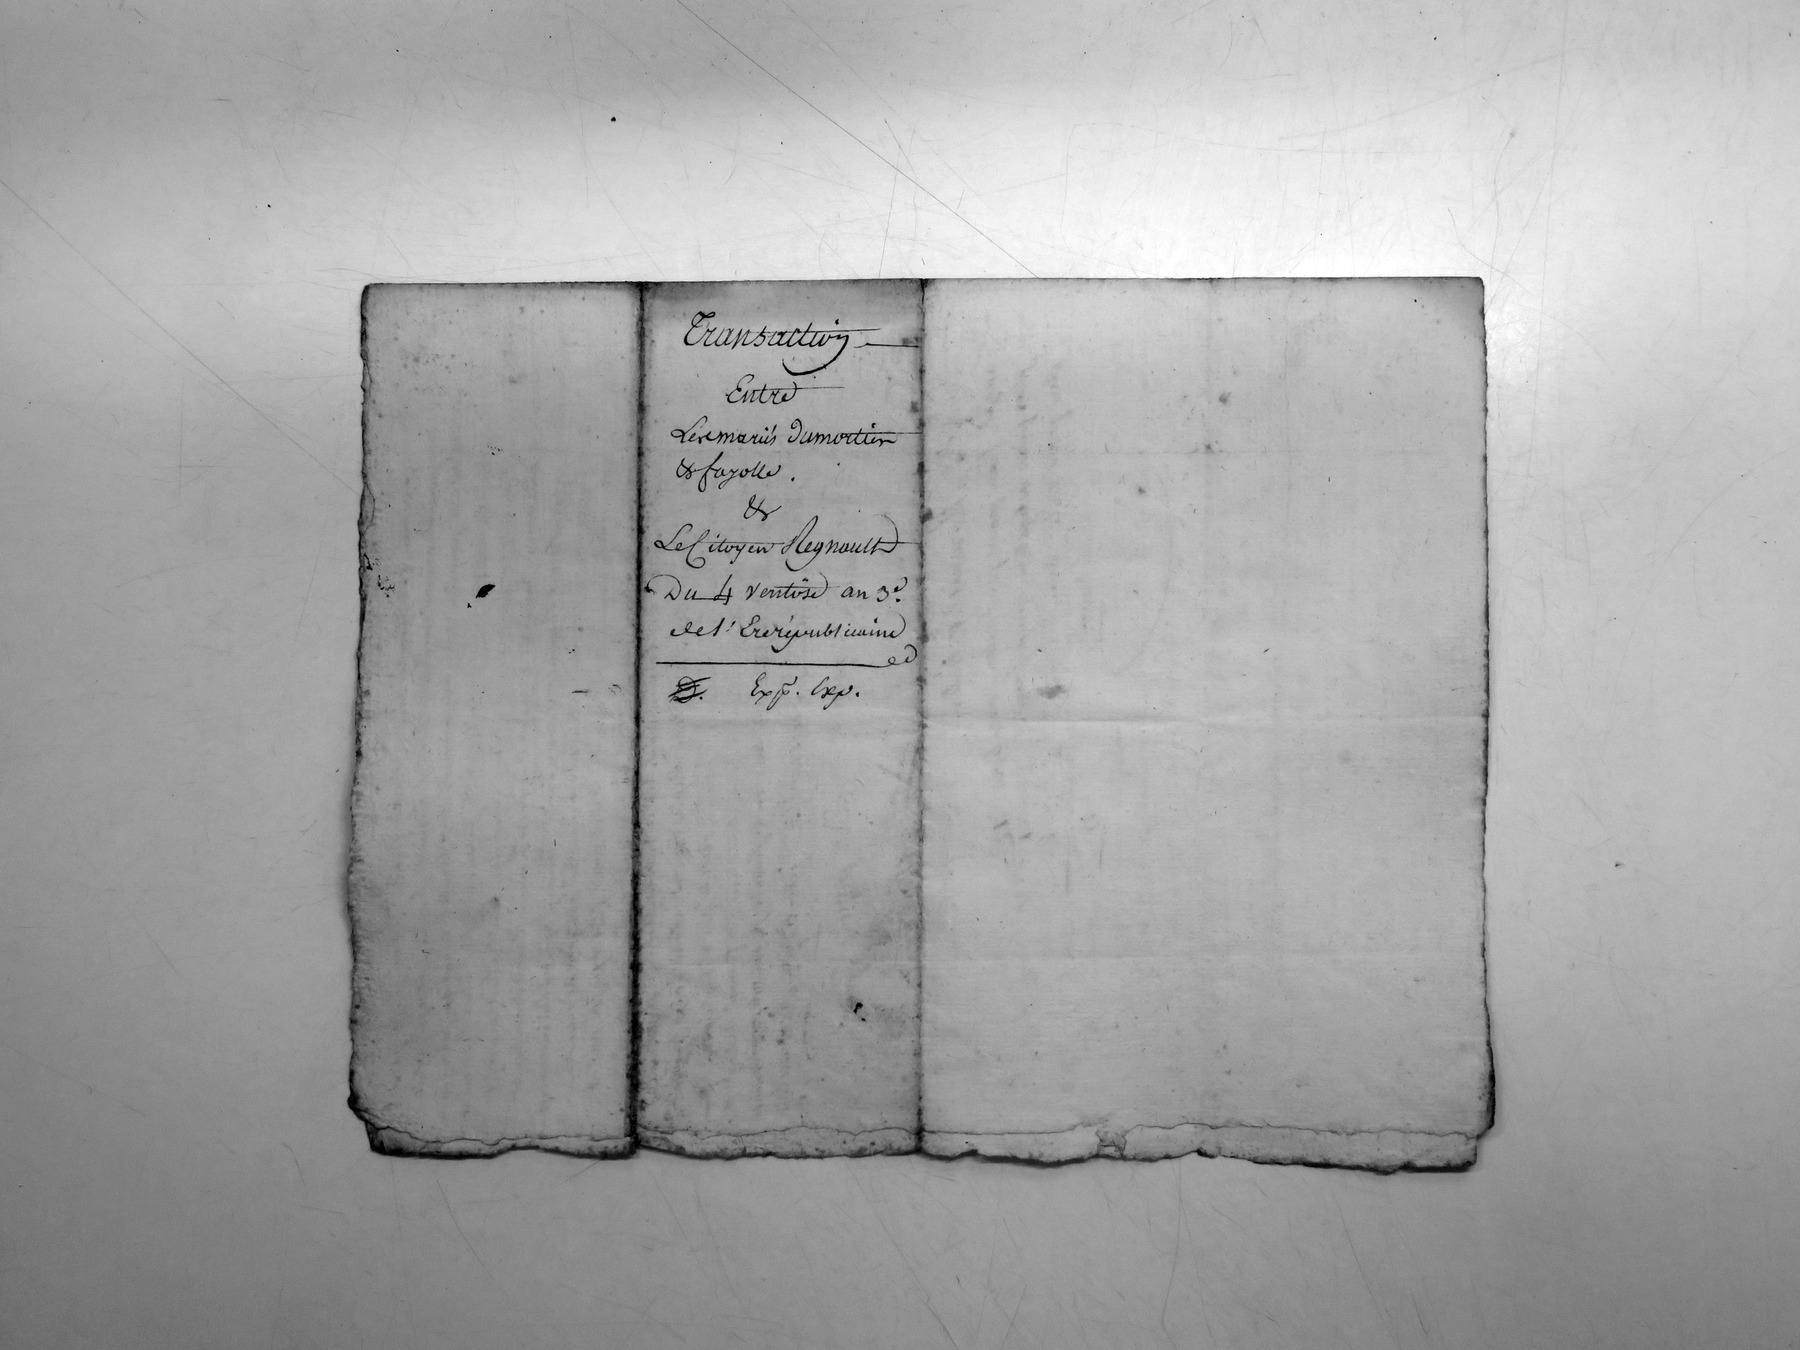 Transaction
Entre
Les mariés Dumortier
& fayolle.
&
Le Citoyen Regnault
Du 4 ventôse an 3e.
de l'Ere républicaine
Exp. Exp.